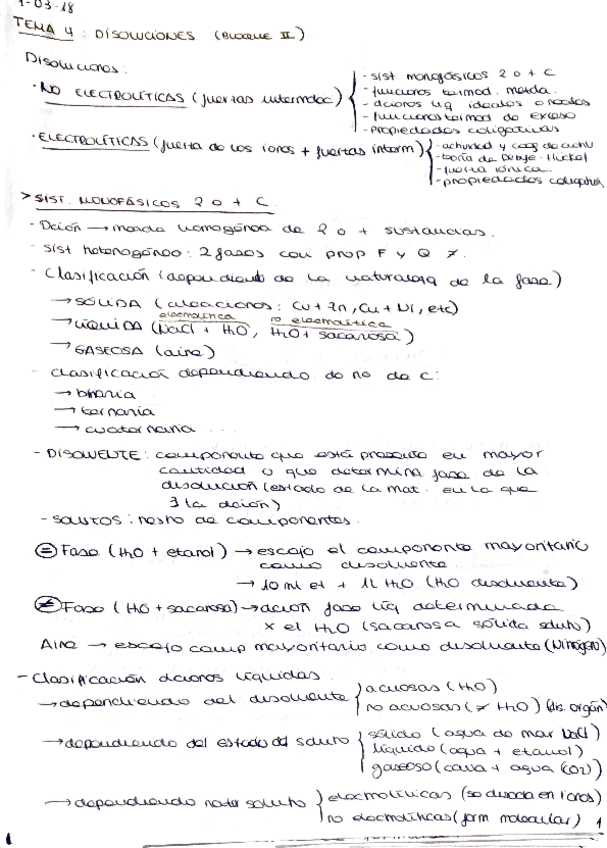 1-03-18
TEMA 4 : DISOLUCIONES (BLOQUE II)
Disoluciones:
· NO ELECTROLÍTICAS (fuerzas intermolec)
- sist monofásicos 2 o + C
- funciones termod. mezcla.
- dciones líq ideales o reales
- funciones termod de exceso
- propiedades coligativas
· ELECTROLÍTICAS (fuerza de los iones + fuerzas interm)
- actividad y coef de activ
- teoría de Debye-Hückel
- fuerza iónica.
- propiedades coligativ
> SIST. MONOFÁSICOS 2 o + C.
- Dción → mezcla homogénea de 2 o + sustancias.
- sist heterogéneo: 2 fases con prop F y Q ≠.
- Clasificación (dependiendo de la naturaleza de la fase)
→ SÓLIDA (aleaciones: Cu + Zn, Cu + Ni, etc)
electrolítica no electrolítica
→ LÍQUIDA (NaCl + H2O, H2O + sacarosa)
→ GASEOSA (aire)
- Clasificación dependiendo de no de C:
→ binaria
→ ternaria
→ cuaternaria
- DISOLVENTE: componente que está presente en mayor
cantidad o que determina fase de la
disolución (estado de la mat. en la que
∃ la dción)
- SOLUTOS: resto de componentes.
= Fase (H2O + etanol) → escojo el componente mayoritario
como disolvente
→ 10 ml et + 1L H2O (H2O disolvente)
≠ Fase (H2O + sacarosa) → dción fase líq determinada
x el H2O (sacarosa sólida soluto)
Aire → escojo comp mayoritario como disolvente (Nitrógeno)
- Clasificación dciones líquidas.
→ dependiendo del disolvente
acuosas (H2O)
no acuosas (≠ H2O) (dis. orgán)
→ dependiendo del estado del soluto
sólido (agua de mar NaCl)
líquido (agua + etanol)
gaseoso (cava + agua (CO2))
→ dependiendo nater soluto
electrolíticas (se disocia en iones)
no electrolíticas (form molecular)
1